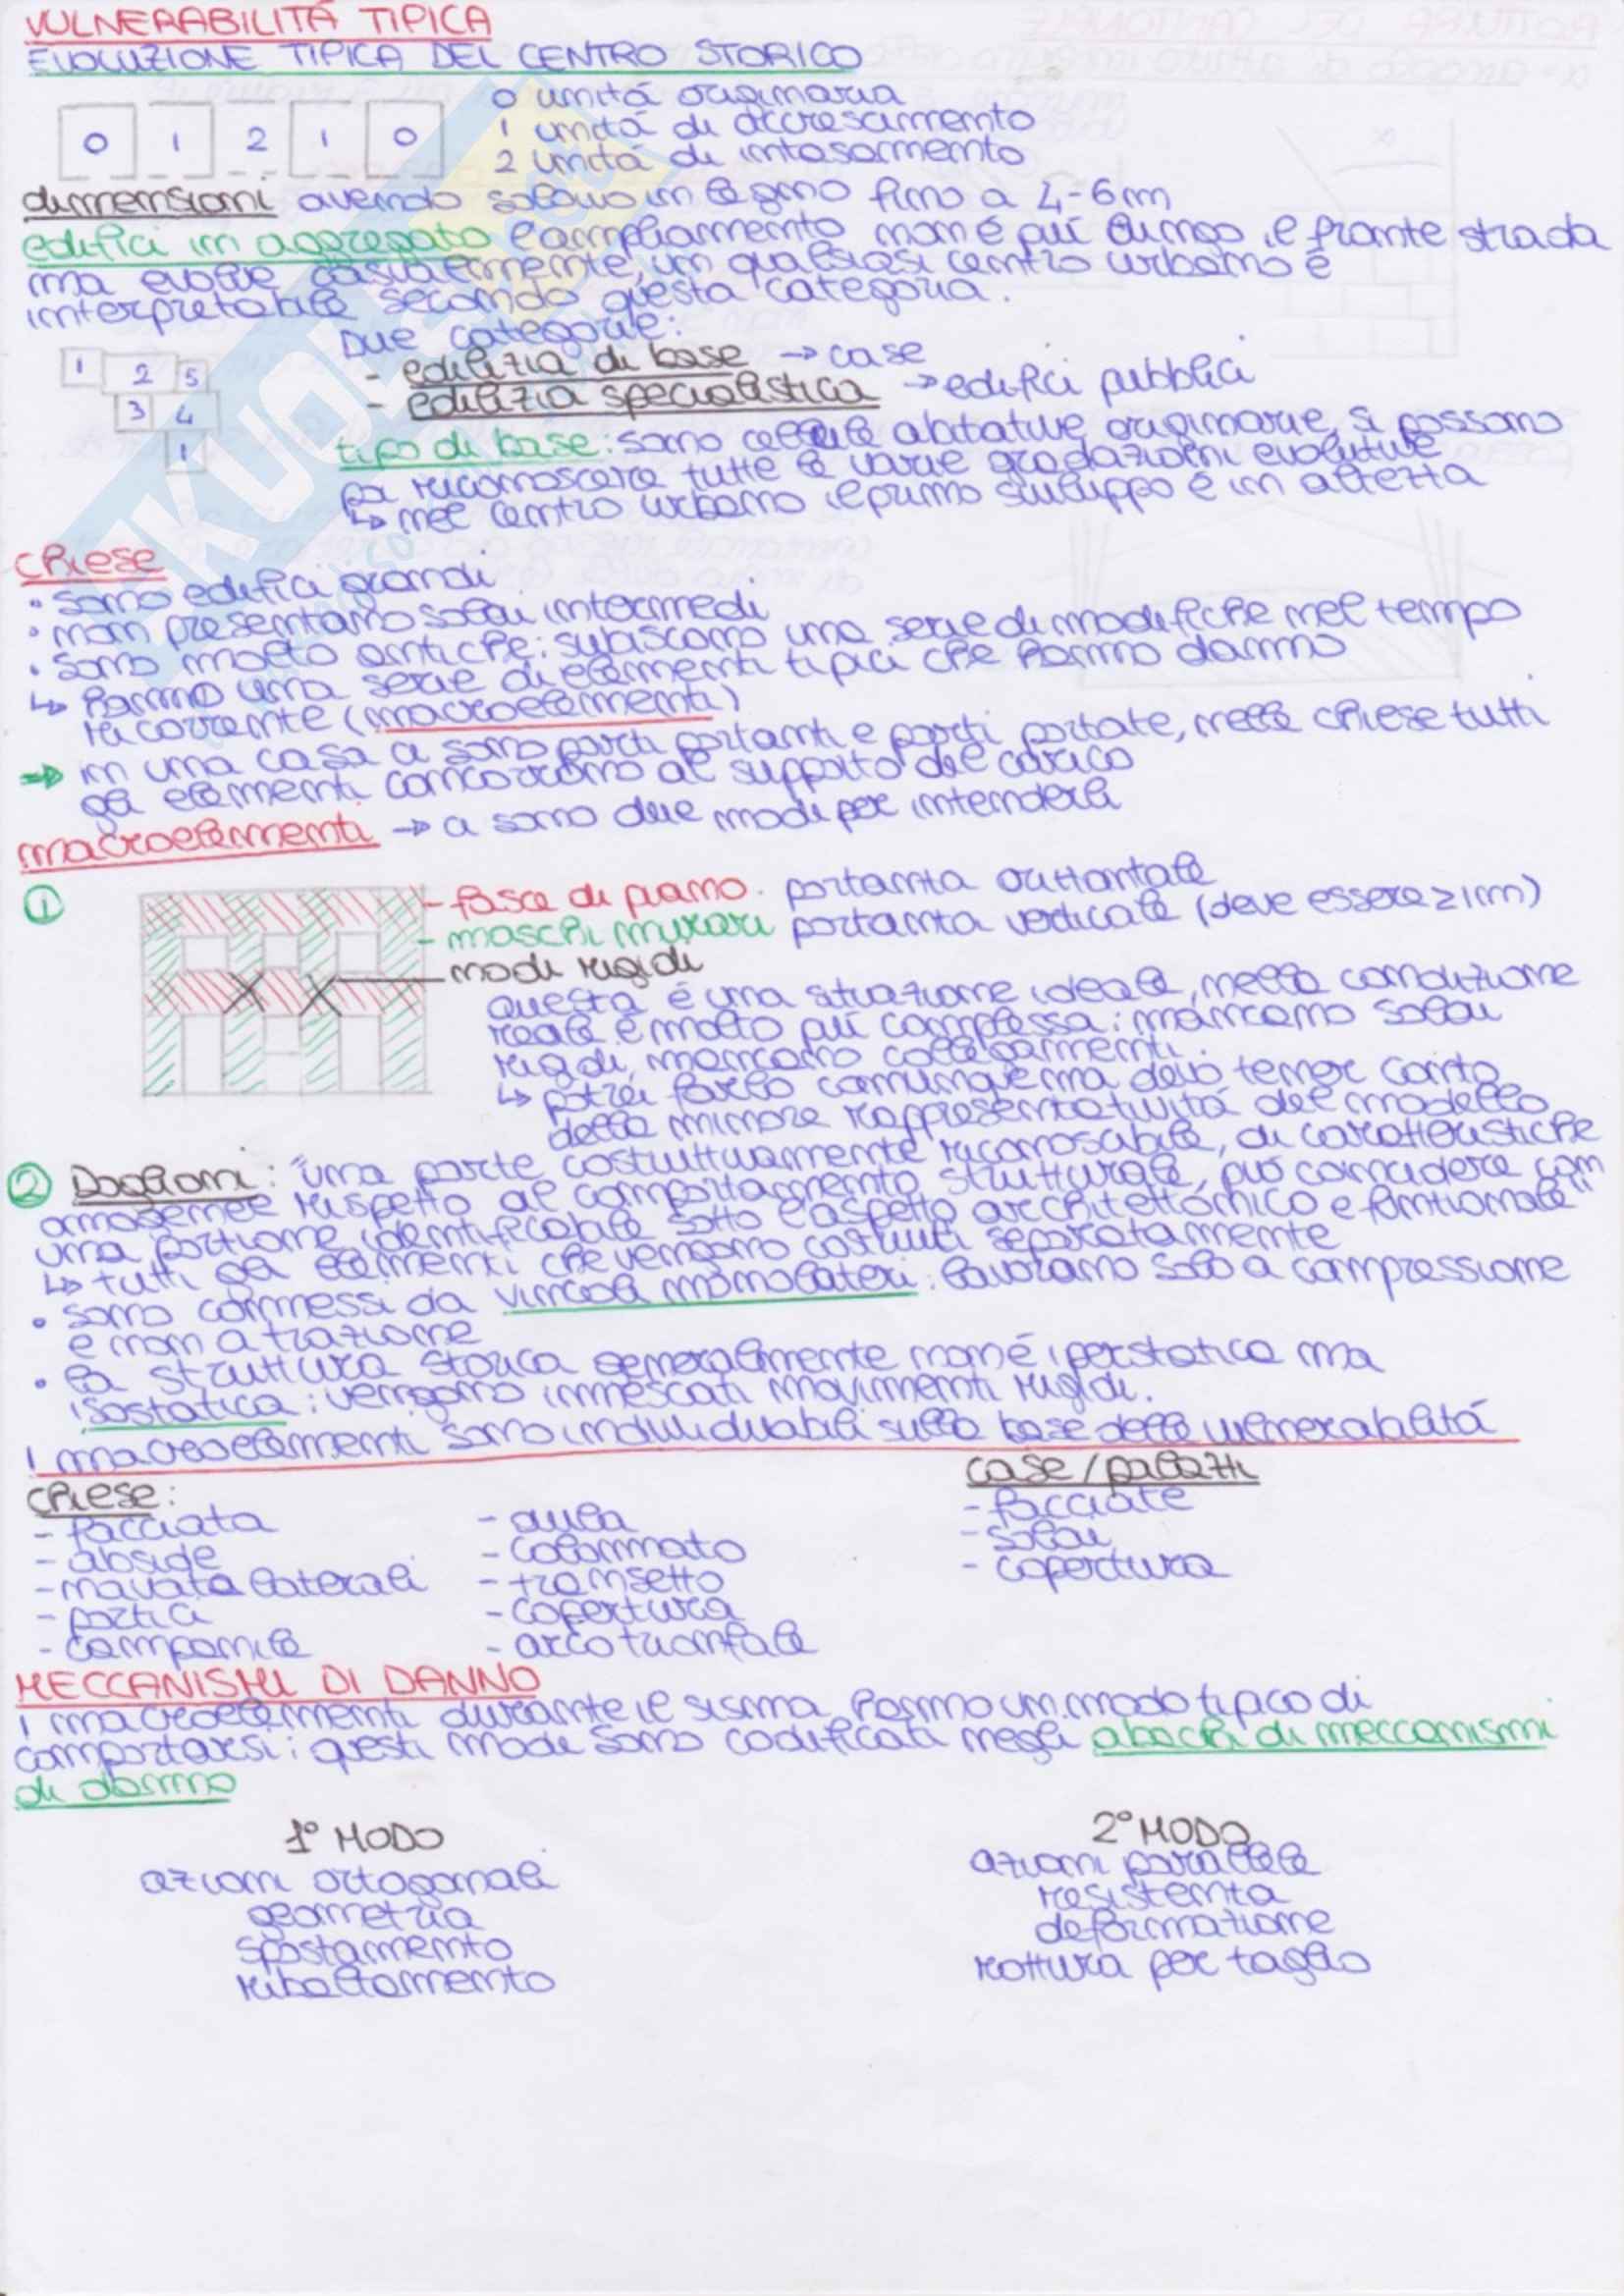 VULNERABILITÁ TIPICA
EVOLUZIONE TIPICA DEL CENTRO STORICO
0 1 2 1 0
0 unitá originaria
1 unitá di accrescimento
2 unitá di intasamento
dimensioni avendo solaio in legno fino a 4-6m
edifici in aggregato l'ampliamento non é piú lungo il fronte strada
ma evolve casualmente, un qualsiasi centro urbano é
interpretabile secondo questa categoria.
Due categorie:
- edilizia di base → case
- edilizia specialistica → edifici pubblici
1 2 5
3 4
1
tipo di base: sono cellule abitative originarie, si possono
poi riconoscere tutte le varie gradazioni evolutive
↳ nel centro urbano il primo sviluppo é in altezza
chiese
• sono edifici grandi
• non presentano solai intermedi
• sono molto antiche: subiscono una serie di modifiche nel tempo
↳ hanno una serie di elementi tipici che hanno danno
ricorrente (macroelementi)
⇒ in una casa ci sono parti portanti e parti portate, nelle chiese tutti
gli elementi concorrono al supporto del carico
macroelementi → ci sono due modi per intenderli
①
- fasce di piano. portanza orizzontale
- maschi murari portanza verticale (deve essere ≥ 1m)
nodi rigidi
questa é una situazione ideale, nella condizione
reale é molto piú complessa: mancano solai
rigidi, mancano collegamenti.
↳ potrei farlo comunque ma devo tener conto
della minore rappresentativitá del modello
② Doglioni: "una parte costruttivamente riconoscibile, di caratteristiche
omogenee rispetto al comportamento strutturale, puó coincidere con
una porzione identificabile sotto l'aspetto architettonico e funzionale"
↳ tutti gli elementi che vengono costruiti separatamente
• sono connessi da vincoli monolateri: lavorano solo a compressione
e non a trazione
• la struttura storica generalmente non é iperstatica ma
isostatica: vengono innescati movimenti rigidi.
I macroelementi sono individuabili sulla base della vulnerabilitá
chiese:
- facciata
- abside
- navata laterali
- portici
- campanile
- aula
- colonnato
- transetto
- copertura
- arco trionfale
case/palazzi
- facciate
- solai
- copertura
MECCANISMI DI DANNO
I macroelementi durante il sisma hanno un modo tipico di
comportarsi: questi modi sono codificati negli abachi di meccanismi
di danno
1° MODO
azioni ortogonali
geometria
spostamento
ribaltamento
2° MODO
azioni parallele
resistenza
deformazione
rottura per taglio